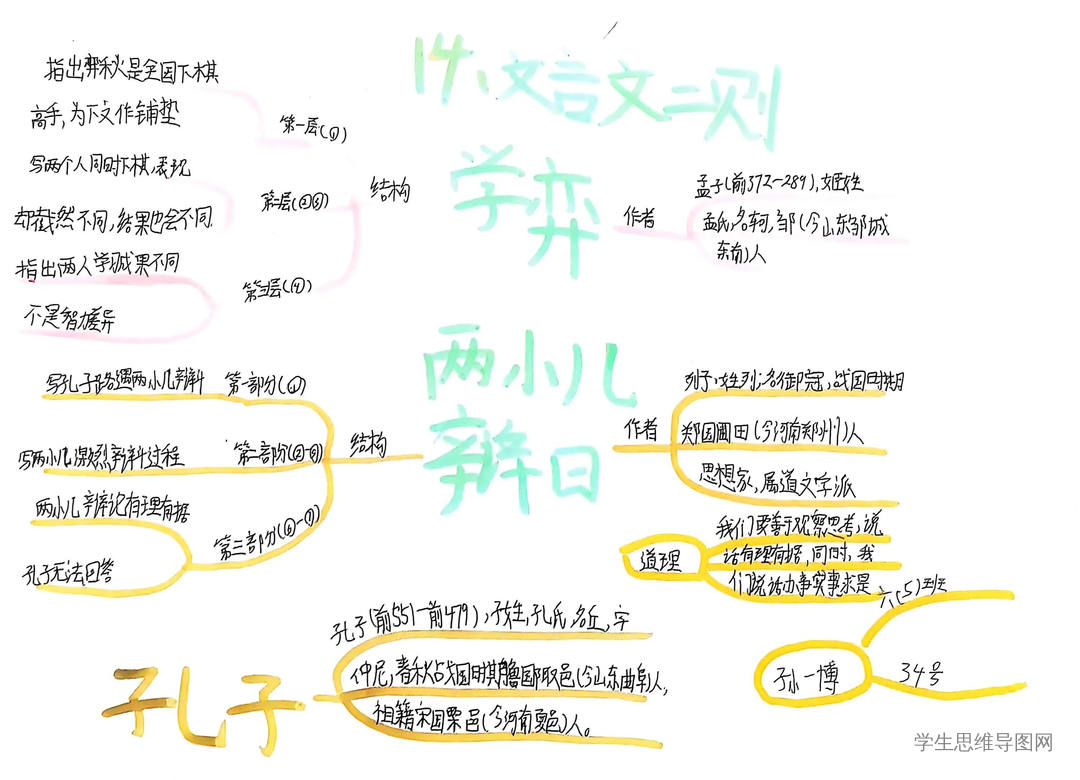 14、文言文二则
学弈
结构
第一层(①)
指出弈秋是全国下棋
高手,为下文作铺垫
第二层(②③)
写两个人同时下棋,表现
却截然不同,结果也会不同.
第三层(④)
指出两人学诚果不同
不是智力差异
作者
孟子(前372-289),姬姓
孟氏,名轲,邹(今山东邹城
东南)人
两小儿
辩日
结构
第一部分(①)
写孔子路遇两小儿辩斗
第二部分
写两小儿激烈辩斗过程
第三部分
两小儿辩论有理有据
孔子无法回答
作者
列子,姓列,名御寇,战国时期
郑国圃田(今河南郑州)人
思想家,属道文学派
道理
我们要善于观察思考,说
话有理有据,同时,我
们说话办事实事求是
孔子
孔子(前551-前479),子姓,孔氏,名丘,字
仲尼,春秋战国时期鲁国陬邑(今山东曲阜)人,
祖籍宋国栗邑(今河南夏邑)人。
孙一博
六(5)班
34号
学生思维导图网